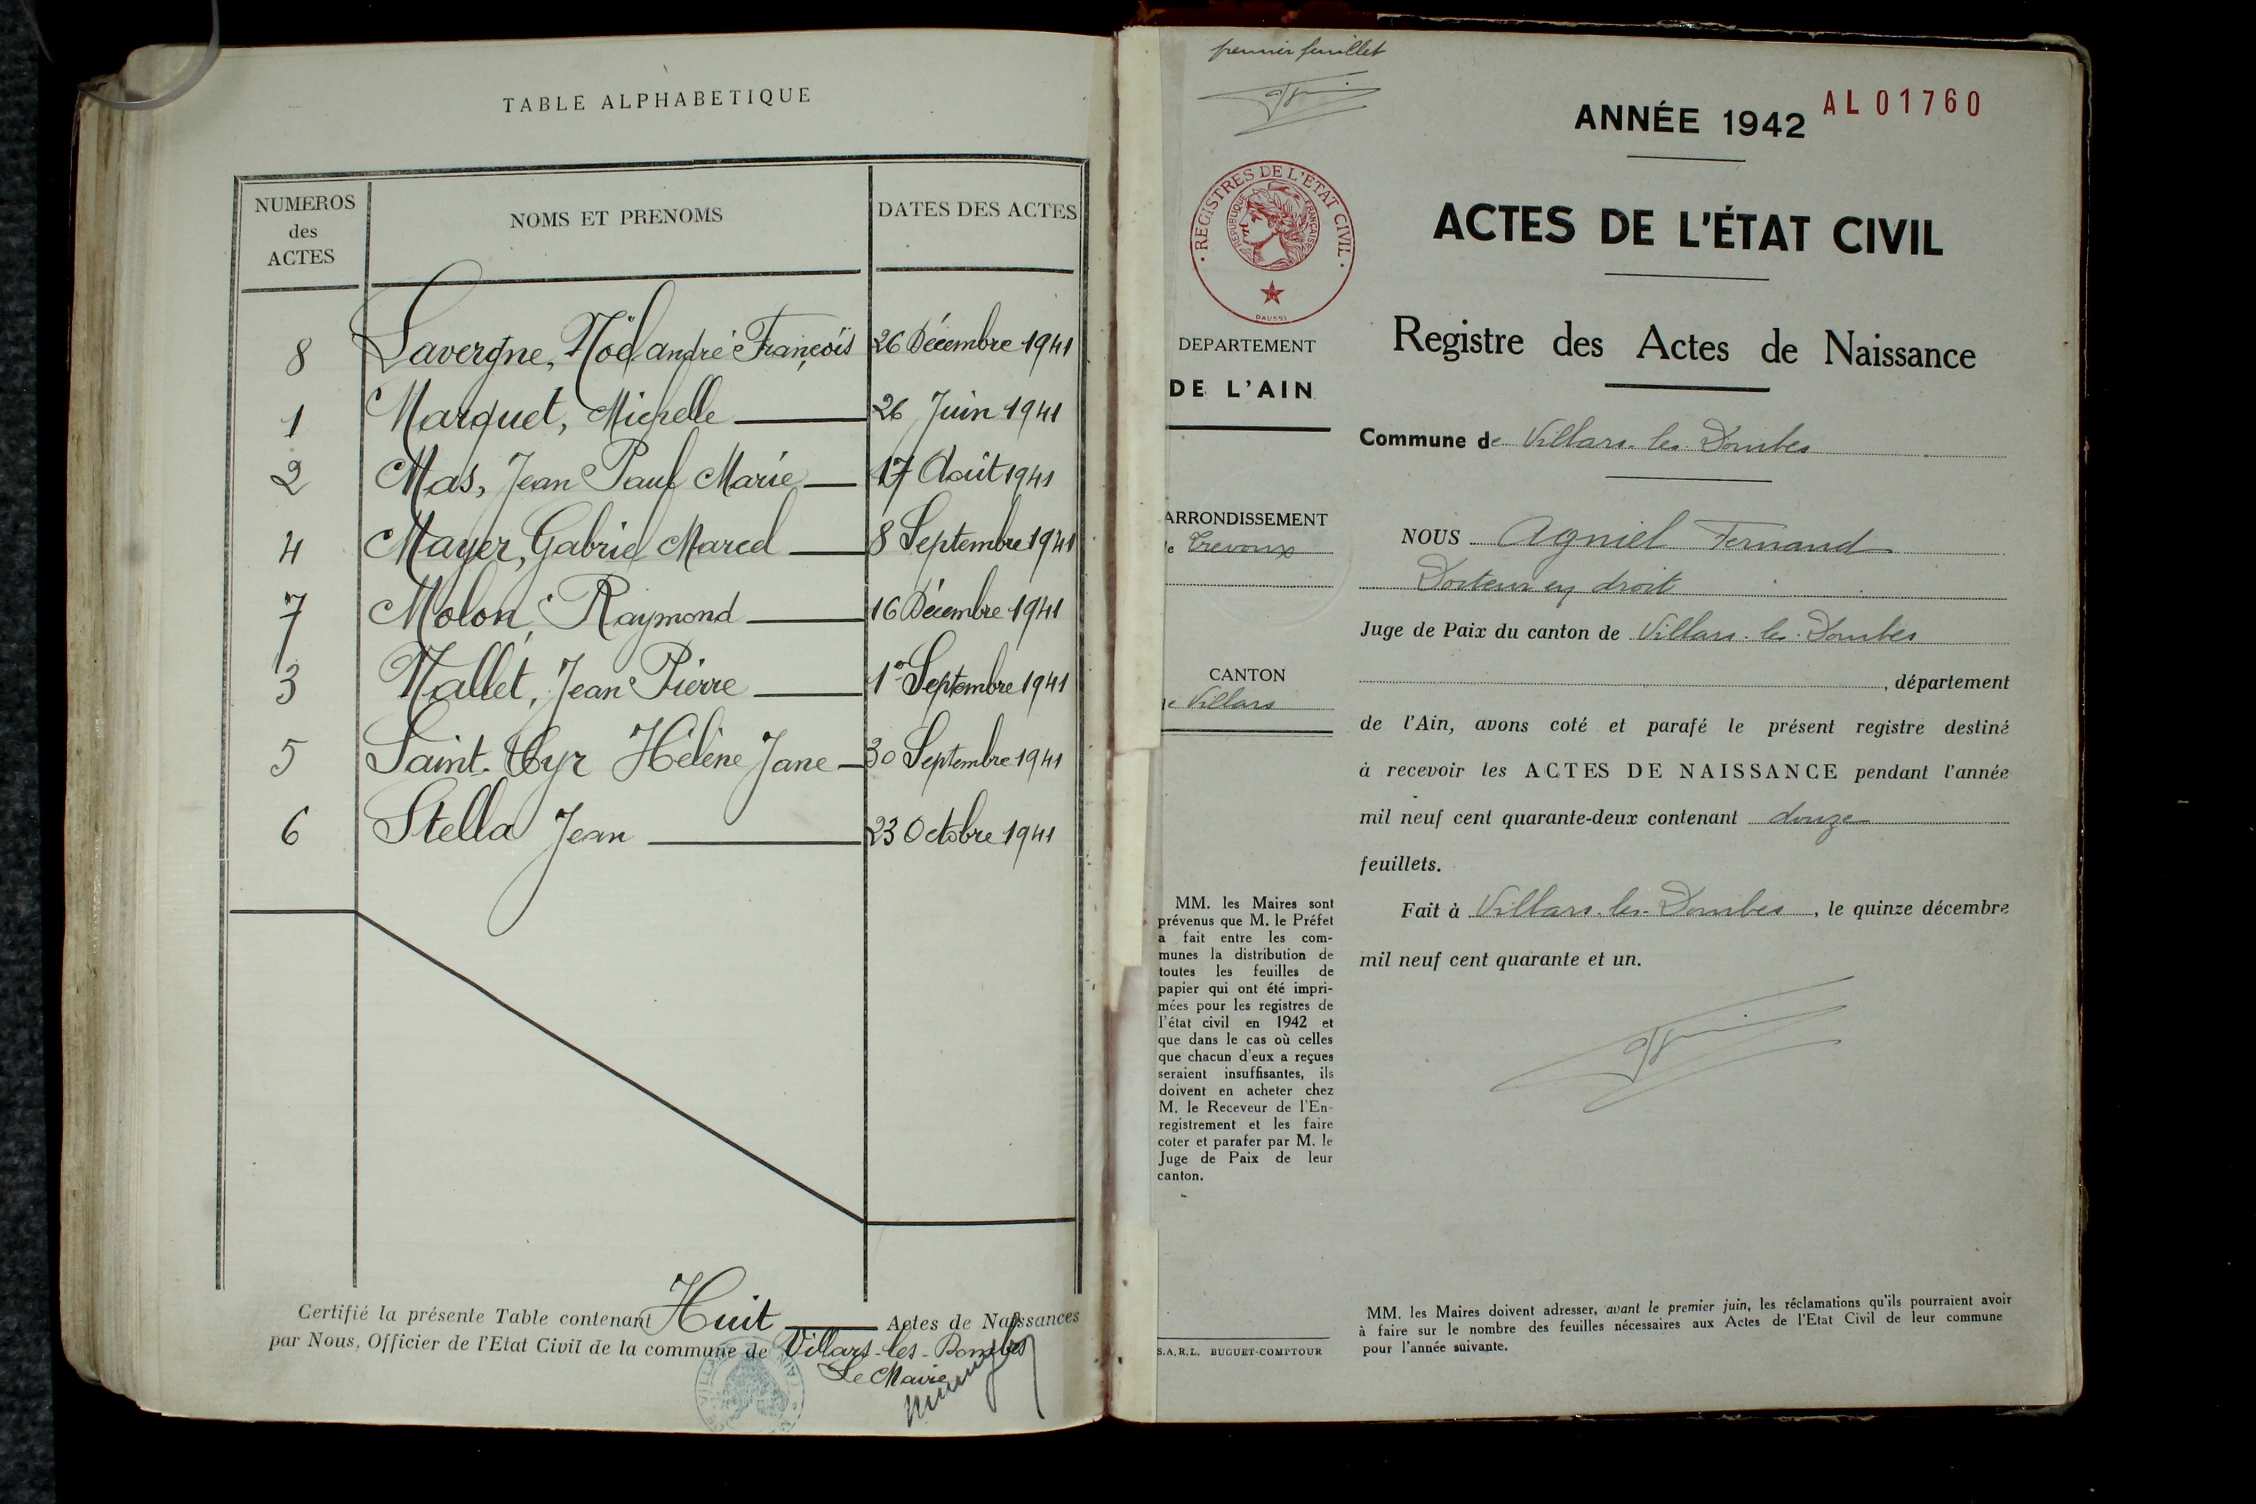 TABLE ALPHABETIQUE
NUMEROS
des
ACTES
NOMS ET PRENOMS
DATES DES ACTES
8 Lavergne, Noël André François 26 Décembre 1941
1 Marquet, Michelle 26 Juin 1941
2 Mas, Jean Paul Marie 17 Août 1941
4 Mayer, Gabriel Marcel 8 Septembre 1941
7 Molon, Raymond 16 Décembre 1941
3 Nallet, Jean Pierre 1er Septembre 1941
5 Saint-Cyr Hélène Jane 30 Septembre 1941
6 Stella Jean 23 Octobre 1941
Certifié la présente Table contenant Huit Actes de Naissances
par Nous, Officier de l'Etat Civil de la commune de Villars-les-Dombes
Le Maire
premier feuillet
ANNÉE 1942
AL01760
REGISTRES DE L'ETAT CIVIL
REPUBLIQUE FRANÇAISE
ACTES DE L'ÉTAT CIVIL
Registre des Actes de Naissance
DEPARTEMENT
DE L'AIN
Commune de Villars-les-Dombes
ARRONDISSEMENT
de Trévoux
CANTON
de Villars
NOUS Agniel Fernand
Docteur en droit
Juge de Paix du canton de Villars-les-Dombes
, département
de l'Ain, avons coté et parafé le présent registre destiné
à recevoir les ACTES DE NAISSANCE pendant l'année
mil neuf cent quarante-deux contenant douze
feuillets.
Fait à Villars-les-Dombes, le quinze décembre
mil neuf cent quarante et un.
MM. les Maires sont
prévenus que M. le Préfet
a fait entre les com-
munes la distribution de
toutes les feuilles de
papier qui ont été impri-
mées pour les registres de
l'état civil en 1942 et
que dans le cas où celles
que chacun d'eux a reçues
seraient insuffisantes, ils
doivent en acheter chez
M. le Receveur de l'En-
registrement et les faire
coter et parafer par M. le
Juge de Paix de leur
canton.
S.A.R.L. BUGUET-COMPTOUR
MM. les Maires doivent adresser, avant le premier juin, les réclamations qu'ils pourraient avoir
à faire sur le nombre des feuilles nécessaires aux Actes de l'Etat Civil de leur commune
pour l'année suivante.